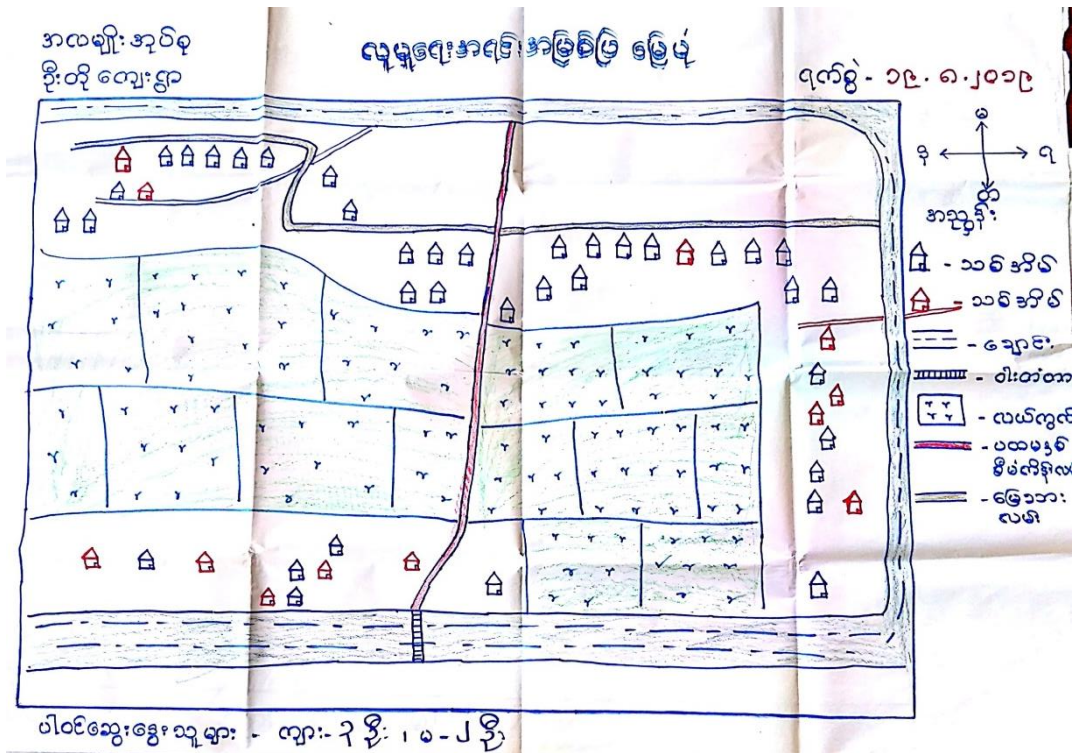 အလမျိုးအုပ်စု
ဦးတိုကျေးရွာ
လူမှုရေးအရင်းအမြစ်ပြ မြေပုံ
ရက်စွဲ - ၁၉.၈.၂၀၁၉
မ
ခ
ရ
တ
အညွှန်း
- သစ်အိမ်
- သစ်အိမ်
- ချောင်း
- ဝါးတံတား
- လယ်ကွက်
- ပထမနှစ်
စီမံကိန်းလမ်း
- မြေသား
လမ်း
ပါဝင်ဆွေးနွေးသူများ - ကျား - ၃ ဦး ၊ မ - ၂ ဦး